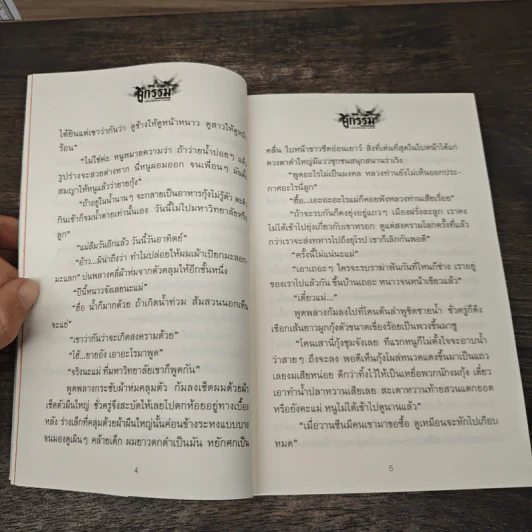 คู่กรรม
ได้ยินแต่เขาว่ากันว่า ดูช้างให้ดูหน้าหนาว ดูสาวให้ดูหน้า
ร้อน”
“ไม่ใช่ค่ะ หนูหมายความว่า ถ้าว่ายน้ำบ่อยๆ แล้ว
รูปร่างจะสวยต่างหาก นี่หนูผอมออก จนเพื่อนๆ มันตั้ง
สมญาให้หนูแล้วว่ายายกุ้ง”
“ถ้าอยู่ในน้ำนานๆ จะกลายเป็นอาหารกุ้งไม่รู้ตัว
กินเข้าก็จมน้ำตายเท่านั้นเอง วันนี้ไม่ไปมหาวิทยาลัยหรือ
ลูก”
“แม่ลืมวันอีกแล้ว วันนี้วันอาทิตย์”
“อ้าว...มิน่าถึงว่า ทำไมปล่อยให้ผมเผ้าเปียกมะลอก-
มะแลก” บ่นพลางคลี่ผ้าห่มจากตัวคลุมให้อีกชั้นหนึ่ง
“ปีนี้หนาวจังเลยนะแม่”
“ฮื่อ น้ำก็มากด้วย ถ้าเกิดน้ำท่วม ส้มสวนนอกเห็น
จะแย่”
“เขาว่ากันว่าจะเกิดสงครามด้วย”
“โฮ้...ยายอัง เอาอะไรมาพูด”
“จริงนะแม่ ที่มหาวิทยาลัยเขาก็พูดกัน”
พูดพลางกระชับผ้าห่มคลุมตัว ก้มลงเช็ดผมด้วยผ้า
เช็ดตัวผืนใหญ่ ชั่วครู่จึงสะบัดให้เลยไปตกห้อยอยู่ทางเบื้อง
หลัง ร่างเล็กที่คลุมด้วยผ้าผืนใหญ่นั้นค่อนข้างระหงแบบบาง
จนมองดูเผินๆ คล้ายเด็ก ผมยาวดกดำเป็นมัน หยักศกเป็น
4
คู่กรรม
คลื่น ใบหน้าขาวซีดอ่อนเยาว์ สิ่งที่เด่นที่สุดในใบหน้าได้แก่
ดวงตาดำใหญ่มีแววซุกซนสนุกสนานร่าเริง
“พูดอะไรไม่เป็นมงคล หลวงท่านยังไม่เห็นออกประ-
กาศอะไรนี่ลูก”
“ฮื่อ...เอะอะอะไรแม่ก็คอยฟังหลวงท่านเสียเรื่อย”
“ถ้าจะรบกันก็คงยุ่งอยู่แถวๆ เมืองฝรั่งละลูก เราคง
ไม่ได้เข้าไปยุ่งเกี่ยวกับเขาหรอก ดูแต่สงครามโลกครั้งที่แล้ว
กว่าเราจะส่งทหารไปถึงยุโรป เขาก็เลิกกันพอดี”
“ครั้งนี้ไม่แน่นะแม่”
“เอาเถอะๆ ใครจะรบราฆ่าฟันกันที่ไหนก็ช่าง เราอยู่
ของเราไปแล้วกัน ขึ้นบ้านเถอะ หนาวจนหน้าเขียวแล้ว”
“เดี๋ยวแม่...”
พูดพลางก้มลงไปที่โคนต้นลำพูชิดชายน้ำ ชั่วครู่ก็ดึง
เชือกเส้นยาวผูกกุ้งตัวขนาดเขื่องร้อยเป็นพวงขึ้นมาชู
“โคนเสานี่กุ้งชุมจังเลย ทีแรกหนูก็ไม่ตั้งใจจะอาบน้ำ
ว่าสายๆ ถึงจะลง พอดีเห็นกุ้งโผล่หนวดแดงขึ้นมาเป็นแถว
เลยงมเสียหน่อย ดีกว่าทิ้งไว้ให้เป็นเหยื่อพวกนักงมกุ้ง เดี๋ยว
เอาทำน้ำปลาหวานเสียเลย สะเดาหวานท้ายสวนแตกยอด
หรือยังคะแม่ หนูไม่ได้เข้าไปดูนานแล้ว”
“เมื่อวานซืนมีคนเขามาขอซื้อ ดูเหมือนจะหักไปเกือบ
หมด”
5